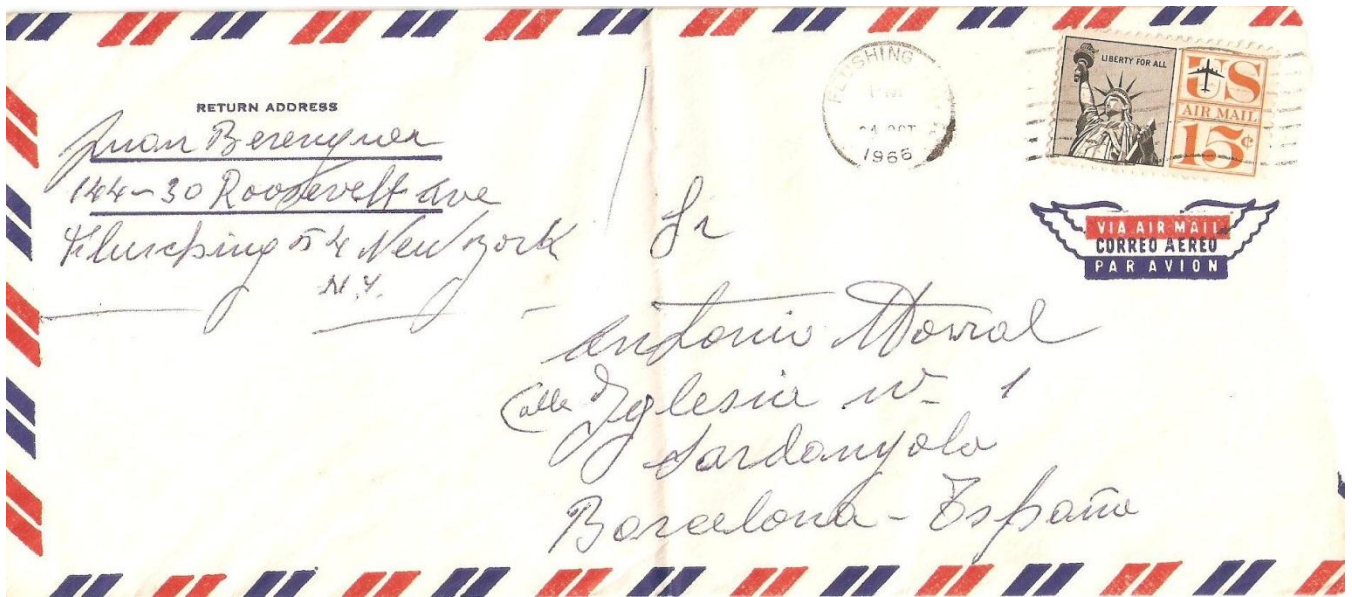 RETURN ADDRESS
Juan Berenguer
144-30 Roosevelt Ave
Flusching 54 New York
N.Y.
FLUSHING
PM
24 OCT
1966
LIBERTY FOR ALL
US
AIR MAIL
15¢
VIA AIR MAIL
CORREO AEREO
PAR AVION
Sr
Antonio
Calle Yglesia nº 1
Sardanyola
Barcelona - España